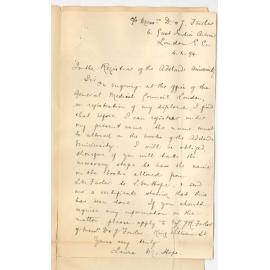 c/o Messrs D & J. Fowler
6. East India Avenue
London E. C.
4. X. 94.
To the Registrar of the Adelaide University
Sir
On enquiring at the office of the
General Medical Council London,
re registration of my diploma I find
that before I can register under
my present name the name must
be altered in the books of the Adelaide
University. I will be obliged
therefore if you will take the
necessary steps to have the name
in the books altered from
L. M. Fowler to L. M. Hope & send
me a certificate stating that this
has been done. If you should
require any information on the
matter please apply to
of Messrs D & J Fowler. King William St
Yours very truly
Laura M. Hope